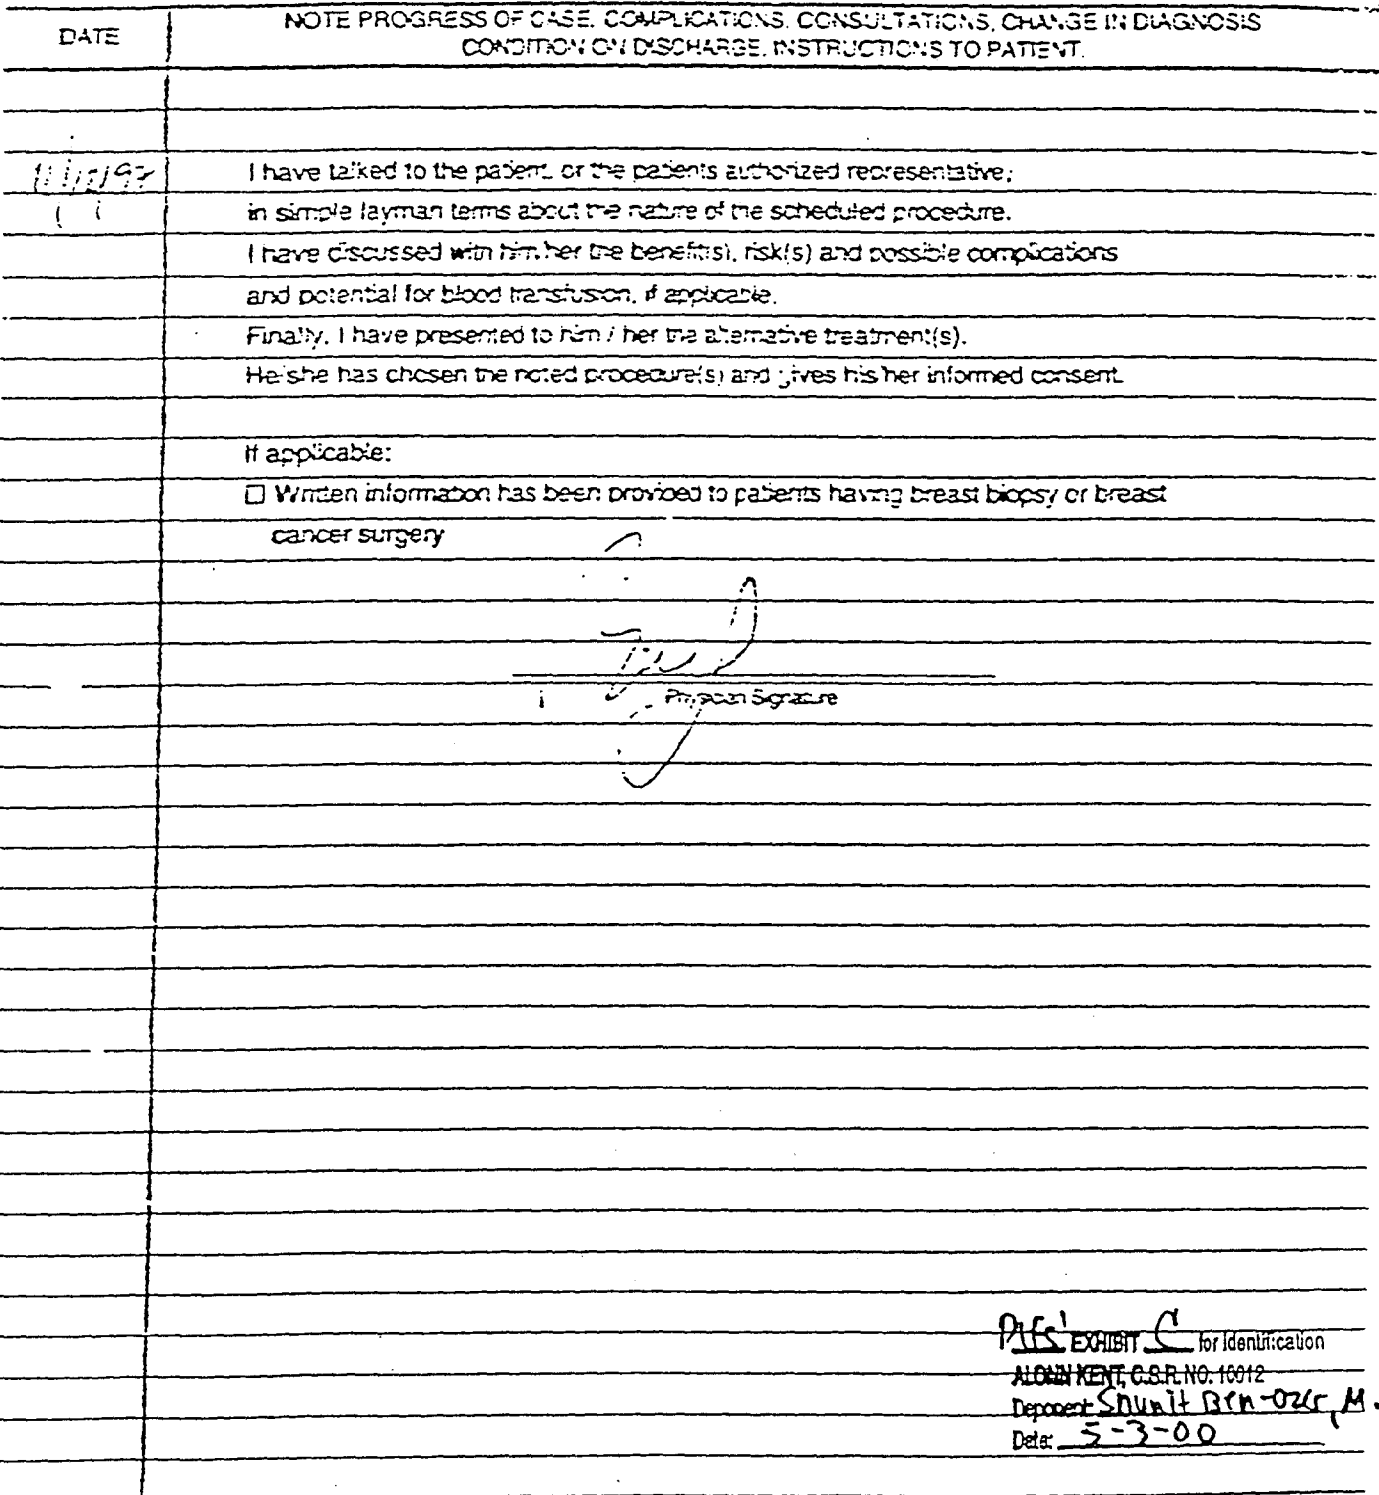 DATE
NOTE PROGRESS OF CASE, COMPLICATIONS, CONSULTATIONS, CHANGE IN DIAGNOSIS
CONDITION ON DISCHARGE, INSTRUCTIONS TO PATIENT.
I have talked to the patient, or the patients authorized representative;
in simple layman terms about the nature of the scheduled procedure.
I have discussed with him/her the benefit(s), risk(s) and possible complications
and potential for blood transfusion, if applicable.
Finally, I have presented to him / her the alternative treatment(s).
He/she has chosen the noted procedure(s) and gives his/her informed consent.
If applicable:
☐ Written information has been provided to patients having breast biopsy or breast
cancer surgery
Physician Signature
Plfs' EXHIBIT C for Identification
KENT, C.S.R. NO. 10012
Deponent Snunit Ben-Ozer, M.
Date: 5-3-00